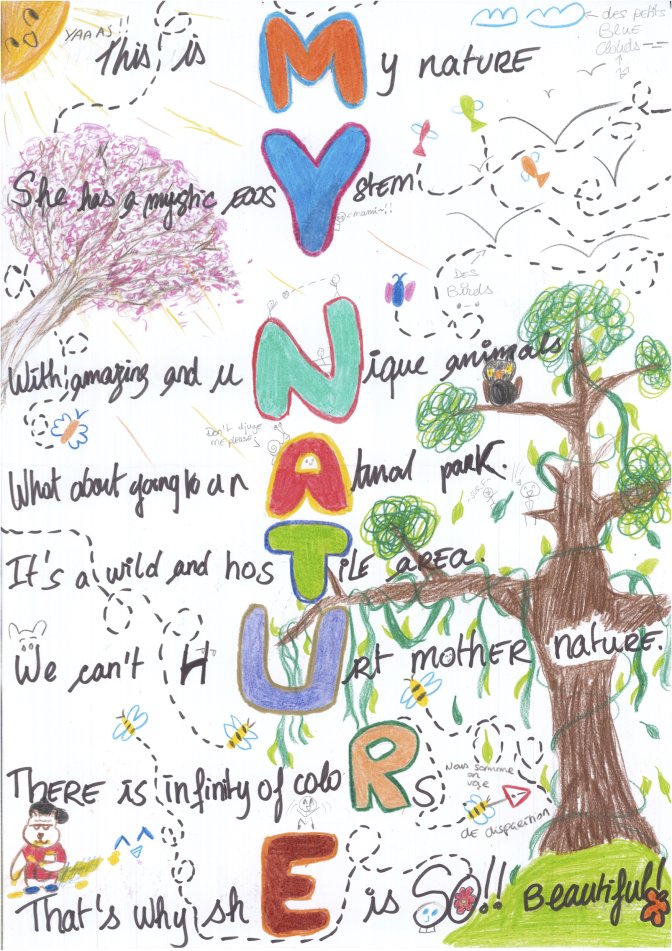 YAAAS!!
des petits
Blue
Clouds
This is My nature
She has a mystic ecosYstem!
<mamie!!
DES
Birds
With amazing and uNique animals
Don't djuge
me please
What about going to a nAtural park.
It's a wild and hosTile area.
We can't HUrt mother nature.
THERE is infinity of coloRs
Nous sommes
en voie
de disparition
That's why shE is SO!! Beautiful!